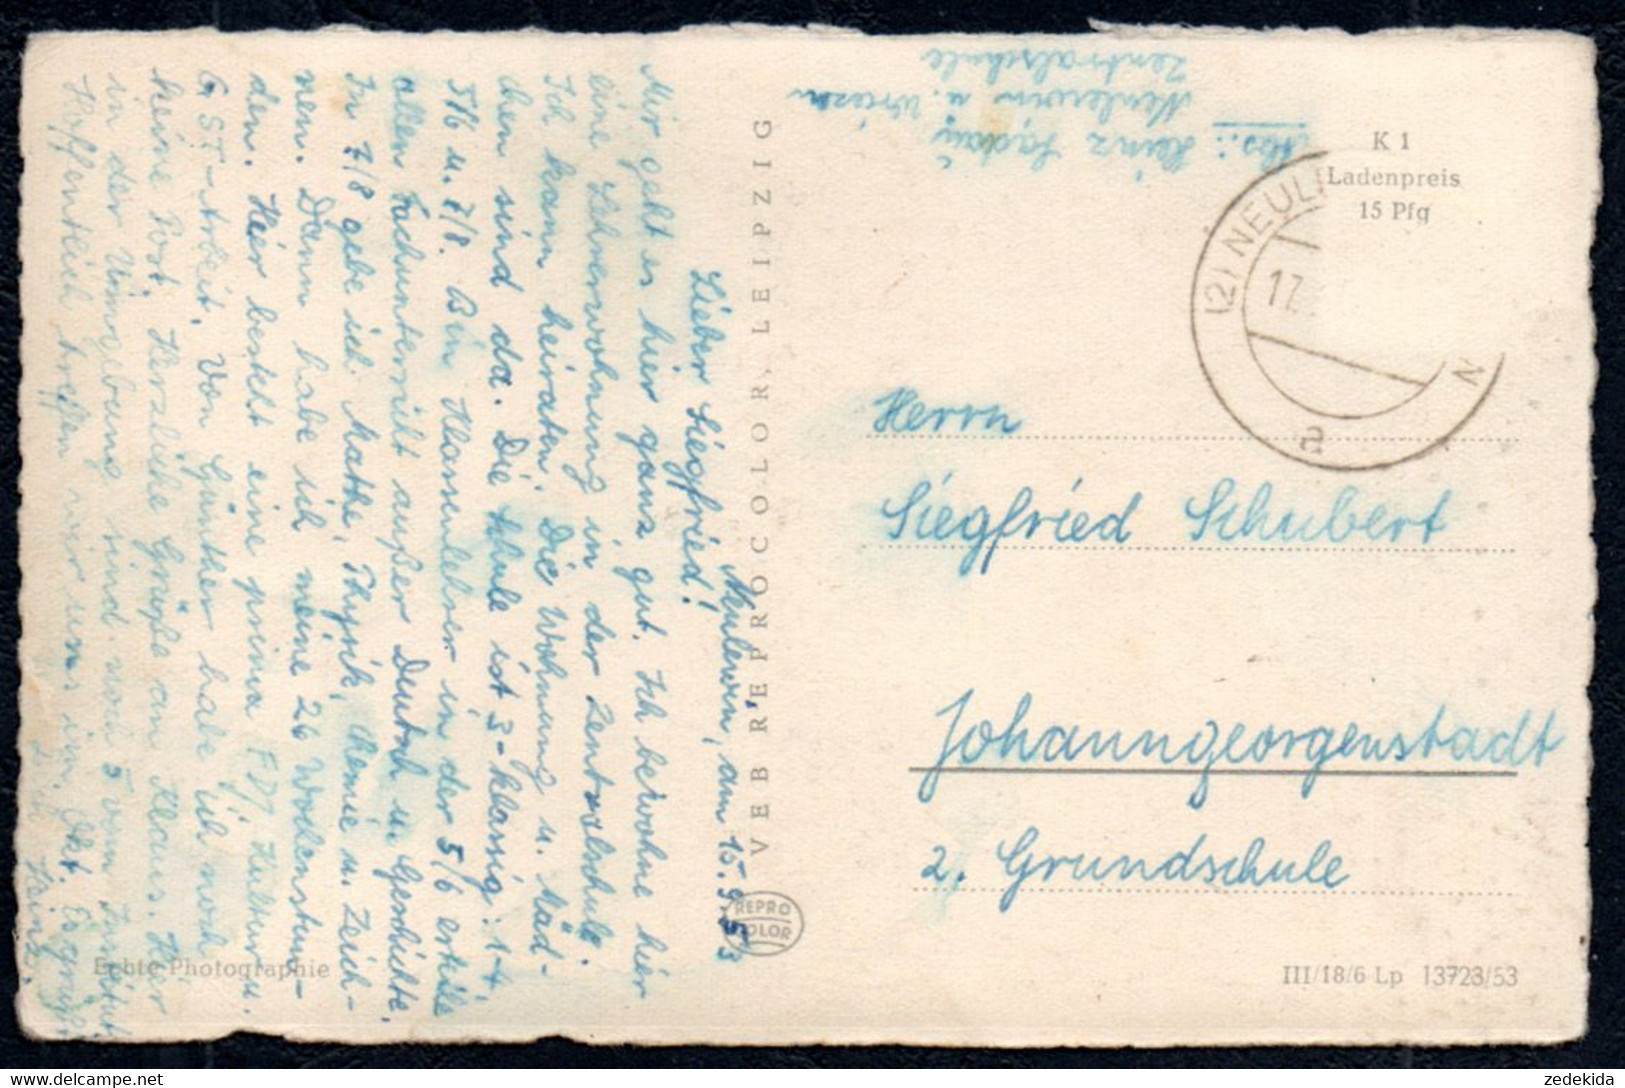 Neulewin, am 15.9.53
Lieber Siegfried!
Mir geht es hier ganz gut. Ich bewohne hier
eine Lehrerwohnung in der Zentralschule.
Ich kann heiraten. Die Wohnung u. Mäd-
chen sind da. Die Schule ist 3-klassig: 1-4,
5/6 u. 7/8. Bin Klassenlehrer in der 5/6 erteile
allen Fachunterricht außer Deutsch u. Geschichte.
In 7/8 gebe ich Mathe, Physik, Chemie u. Zeich-
nen. Dann habe ich meine 26 Wochenstun-
den. Hier besteht eine prima FDJ Kultur u.
GST-Arbeit. Von Günther habe ich noch
keine Post. Herzliche Grüße an Klaus. Hier
in der Umgebung sind noch 5 vom Institut
Hoffentlich treffen wir uns im Okt. Es grüßt
Dich Heinz.
Abs.: Heinz
Neulewin ü. Wriezen
Zentralschule
VEB REPROCOLOR, LEIPZIG
REPRO
COLOR
Echte Photographie
K 1
Ladenpreis
15 Pfg
(2) NEUL N
17.
a
Herrn
Siegfried Schubert
Johanngeorgenstadt
2. Grundschule
III/18/6 Lp 13723/53
zedekida